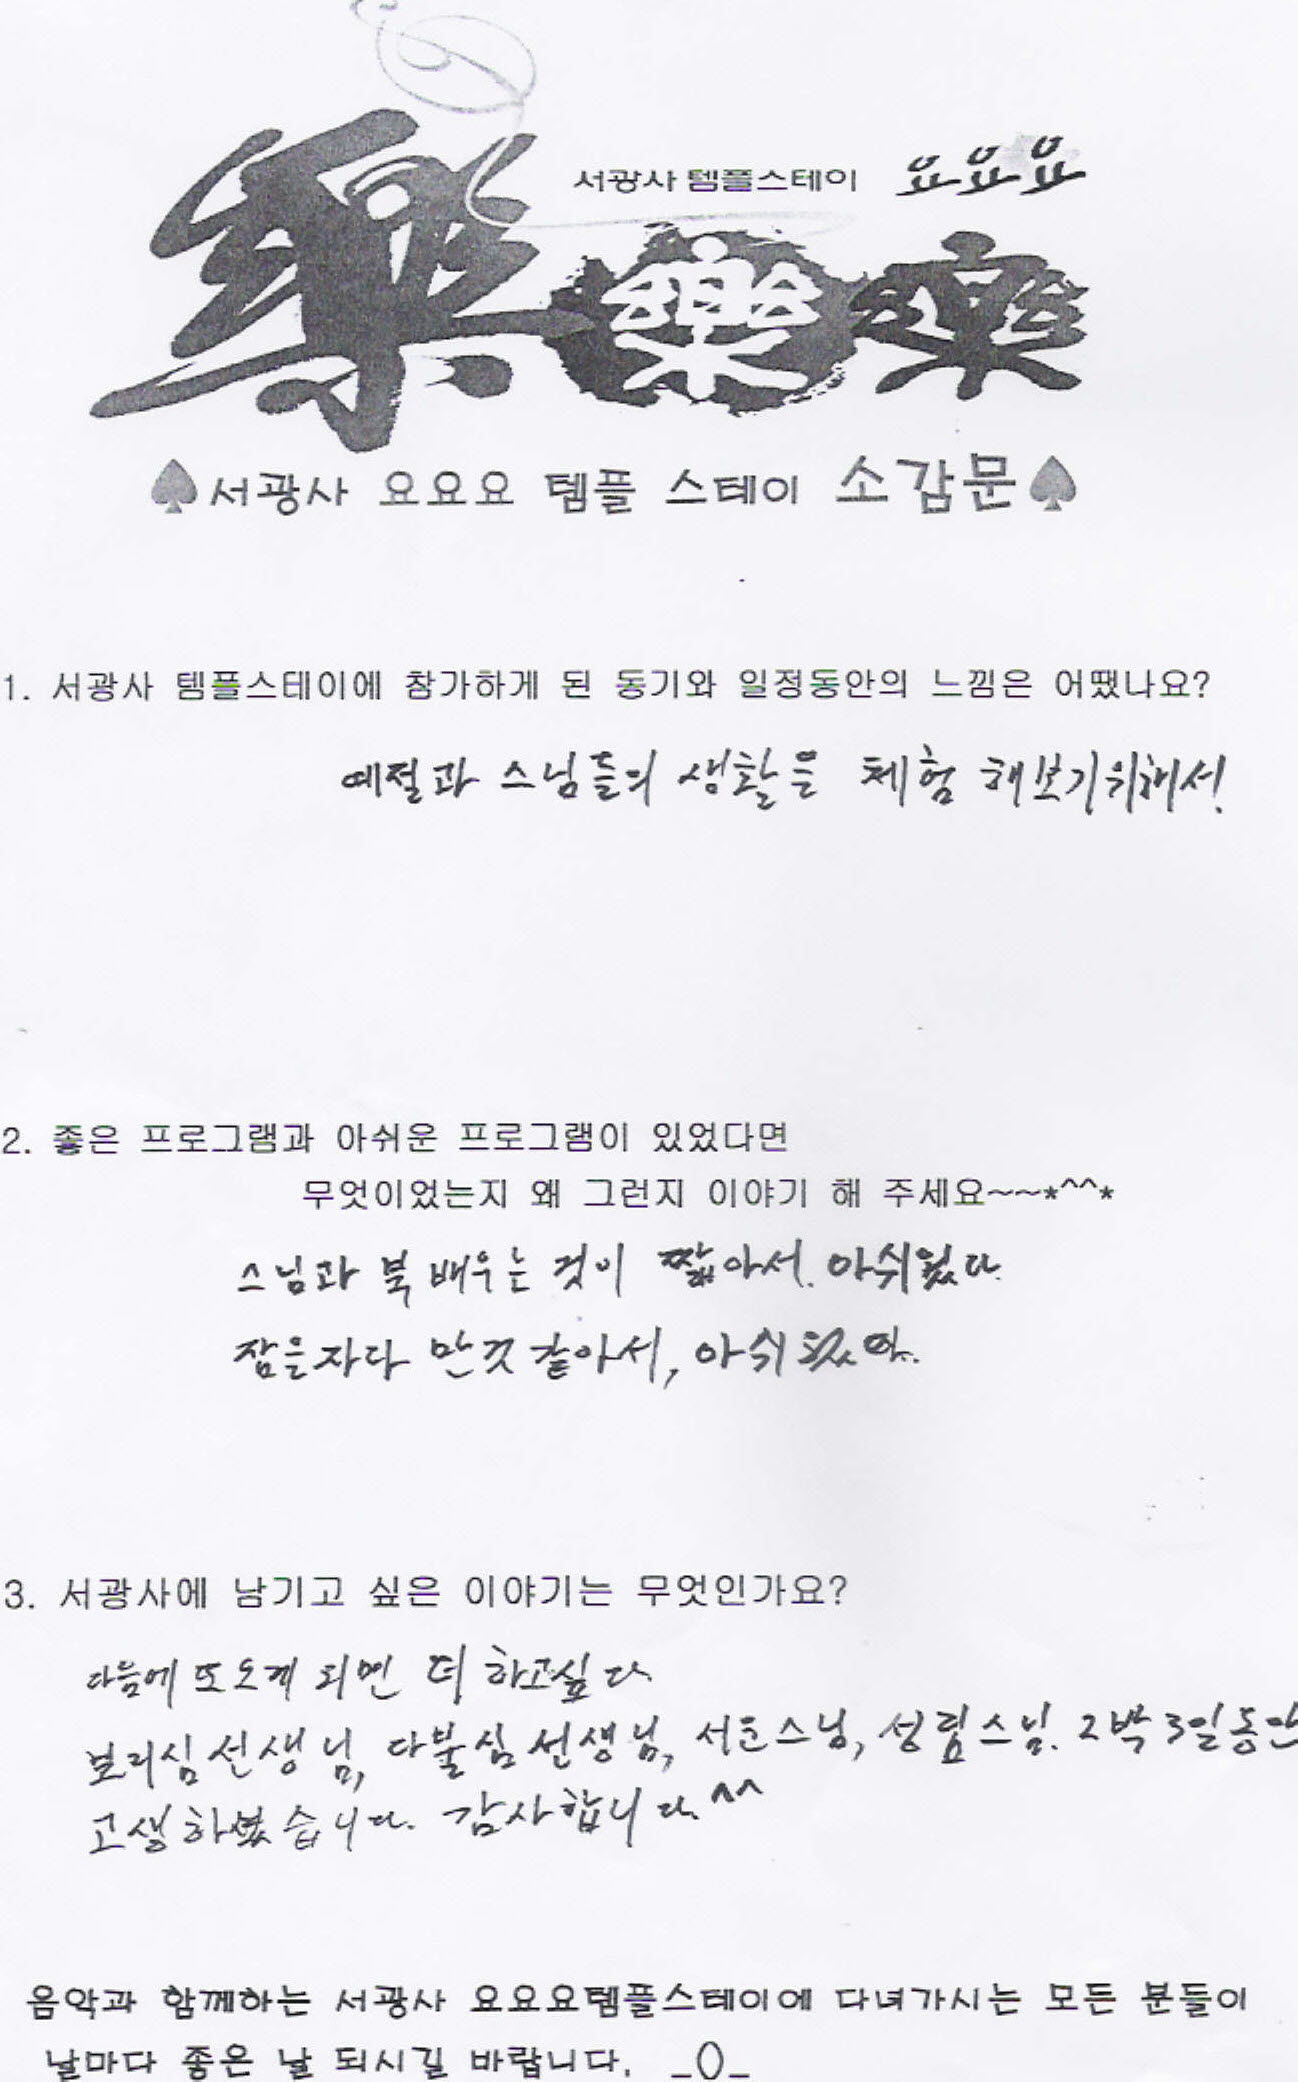 서광사 템플스테이 요요요
樂樂樂
♠서광사 요요요 템플 스테이 소감문♠
1. 서광사 템플스테이에 참가하게 된 동기와 일정동안의 느낌은 어땠나요?
예절과 스님들의 생활을 체험 해보기위해서!
2. 좋은 프로그램과 아쉬운 프로그램이 있었다면
무엇이었는지 왜 그런지 이야기 해 주세요~~*^^*
스님과 북 배우는 것이 짧아서. 아쉬웠다.
잠을자다 만것 같아서, 아쉬웠다.
3. 서광사에 남기고 싶은 이야기는 무엇인가요?
다음에 또오게 되면 더 하고싶다.
보리심선생님, 다불심선생님, 서운스님, 성림스님. 2박3일동안
고생하셨습니다. 감사합니다.^^
음악과 함께하는 서광사 요요요템플스테이에 다녀가시는 모든 분들이
날마다 좋은 날 되시길 바랍니다. _()_